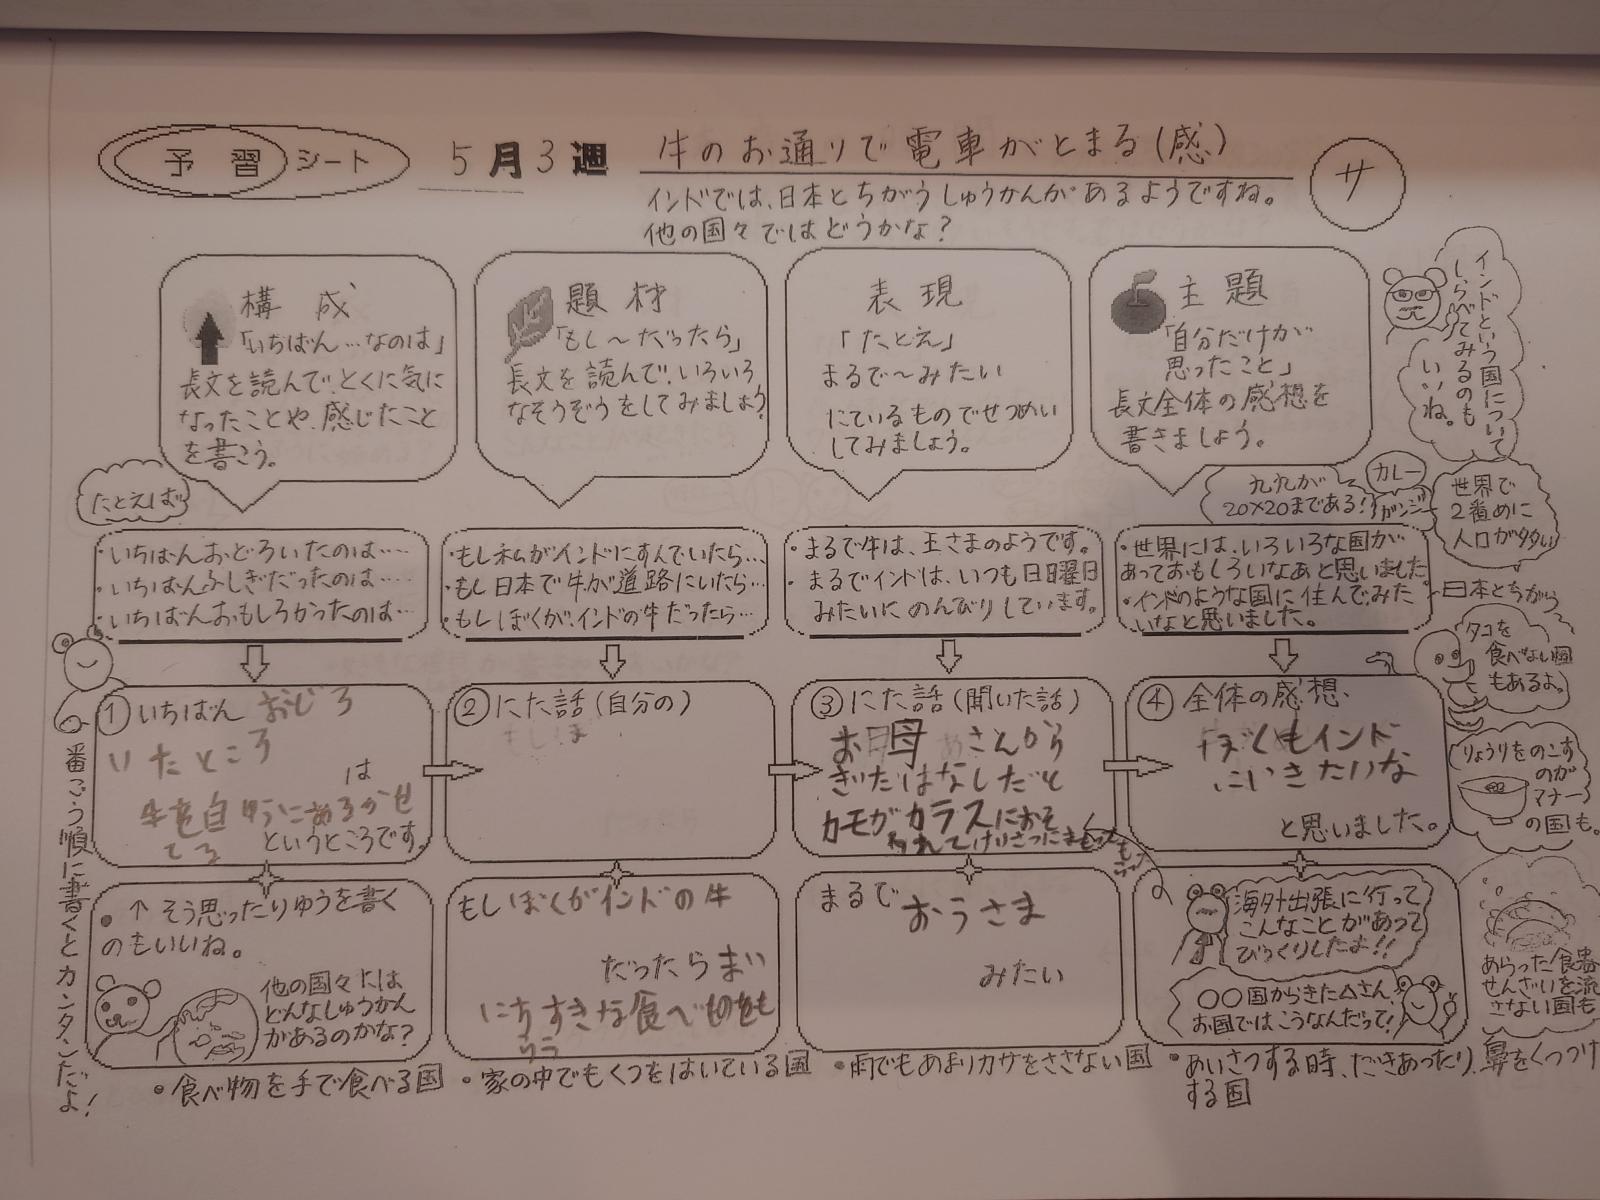 予習シート
5月3週
牛のお通りで電車がとまる(感)
サ
インドでは、日本とちがうしゅうかんがあるようですね。
他の国々ではどうかな?
構成
「いちばん…なのは」
長文を読んで、とくに気に
なったことや、感じたこと
を書こう。
題材
「もし〜だったら」
長文を読んで、いろいろ
なそうぞうをしてみましょう。
表現
「たとえ」
まるで〜みたい
にているものでせつめい
してみましょう。
主題
「自分だけが
思ったこと」
長文全体の感想を
書きましょう。
インドという国について
しらべてみるのも
いいね。
たとえば
九九が
20×20まである!
カレー
ガンジー
世界で
2番めに
人口が多い
・いちばんおどろいたのは……
・いちばんふしぎだったのは……
・いちばんおもしろかったのは…
・もし私がインドにすんでいたら…
・もし日本で牛が道路にいたら…
・もしぼくが、インドの牛だったら…
・まるで牛は、王さまのようです。
・まるでインドは、いつも日曜日
みたいにのんびりしています。
・世界には、いろいろな国が
あっておもしろいなあと思いました。
・インドのような国に住んでみた
いなと思いました。
日本とちがう
タコを
食べない国
もあるよ。
りょうりをのこす
のが
マナー
の国も。
あらった食器
せんざいを流
さない国も
番ごう順に書くとカンタンだよ!
①いちばん おどろ
いたところ
は
というところです。
②にた話(自分の)
もしぼ
③にた話(聞いた話)
お母さんから
きいたはなしだと
カモがカラスにおそ
われてけいさつにまもっても
④全体の感想
ぼくもインド
にいきたいな
と思いました。
●↑そう思ったりゆうを書く
のもいいね。
他の国々には
どんなしゅうかん
があるのかな?
もしぼくがインドの牛
だったらまい
にちすきな食べものをも
らう
まるで おうさま
みたい
海外出張に行って
こんなことがあって
びっくりしたよ!!
○○国からきた△さん、
お国ではこうなんだって!
●食べ物を手で食べる国
●家の中でもくつをはいている国
●雨でもあまりカサをささない国
●あいさつする時、だきあったり、鼻をくっつけ
する国